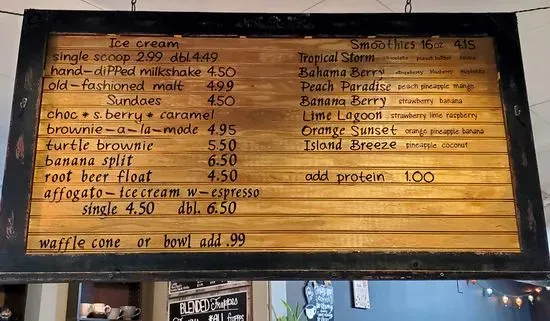 Ice cream
single scoop 2.99 dbl 4.49
hand-dipped milkshake 4.50
old-fashioned malt 4.99
Sundaes 4.50
choc * s. berry * caramel
brownie-a-la-mode 4.95
turtle brownie 5.50
banana split 6.50
root beer float 4.50
affogato-ice cream w-espresso
single 4.50 dbl. 6.50
waffle cone or bowl add .99
Smoothies 16oz 4.15
Tropical Storm
Bahama Berry strawberry blueberry raspberry
Peach Paradise peach pineapple mango
Banana Berry strawberry banana
Lime Lagoon strawberry lime raspberry
Orange Sunset orange pineapple banana
Island Breeze pineapple coconut
add protein 1.00
BLENDED Frappes